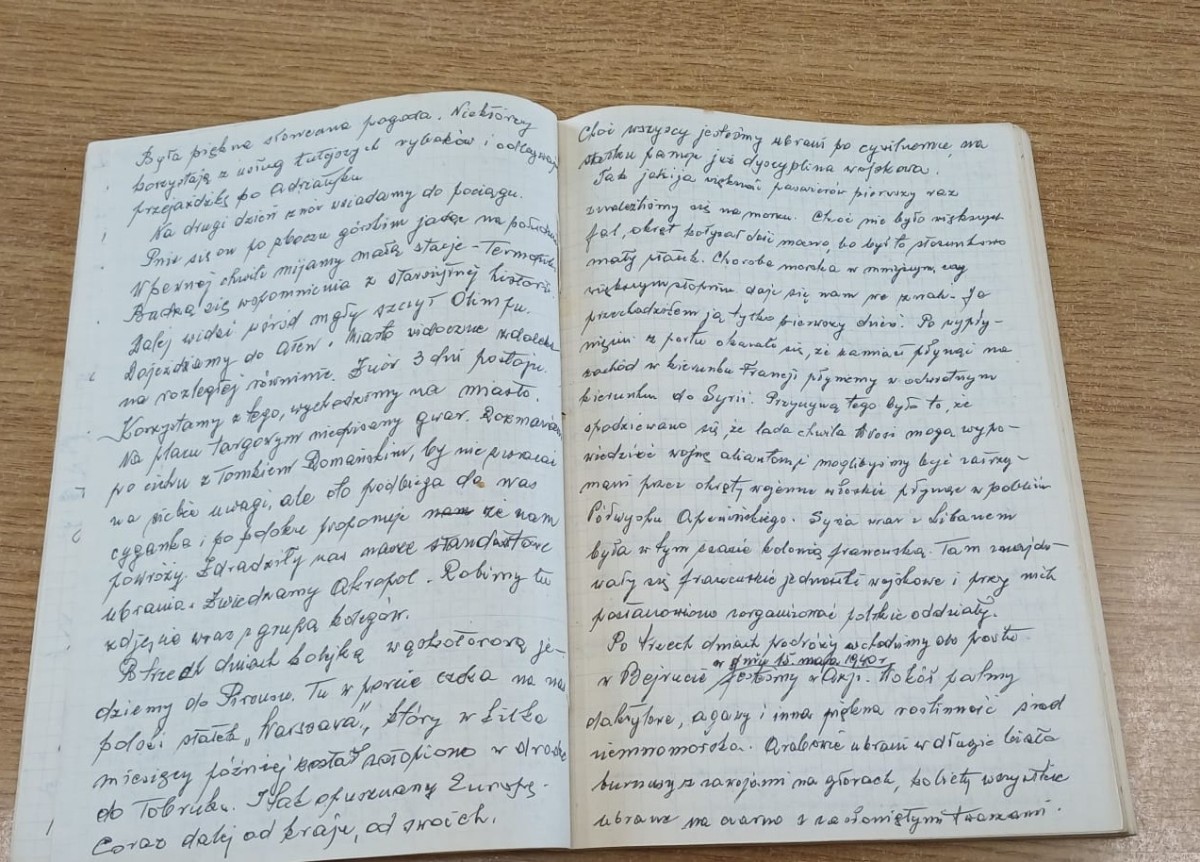 Była piękna słoneczna pogoda. Niektórzy
korzystają z usług tutejszych rybaków i odbywają
przejażdżkę po Adriatyku
Na drugi dzień znów wsiadamy do pociągu.
Pnie się on po zboczu górskim jadąc na południe
W pewnej chwili mijamy małą stację - Termopile
Budzą się wspomnienia z starożytnej historii.
Dalej widać wśród mgły szczyt Olimpu.
Dojeżdżamy do Aten. Miasto widoczne z daleka
na rozległej równinie. Znów 3 dni postoju.
Korzystamy z tego, wychodzimy na miasto.
Na placu targowym nieopisany gwar. Rozmawiam
po cichu z Tomkiem Domańskim, by nie zwracać
na siebie uwagi, ale oto podbiega do nas
cyganka i po polsku proponuje że nam
powróży. Zdradziły nas nasze standartowe
ubrania. Zwiedzamy Akropol. Robimy tu
zdjęcie wraz z grupą kolegów.
Po trzech dniach kolejką wąskotorową je-
dziemy do Pireusu. Tu w porcie czeka na nas
polski statek "Warszawa", który w kilka
miesięcy później został zatopiony w drodze
do Tobruku. I tak opuszczamy Europę.
Coraz dalej od kraju, od swoich.
Choć wszyscy jesteśmy ubrani po cywilnemu, na
statku panuje już dyscyplina wojskowa.
Tak jak i ja większość pasażerów pierwszy raz
znaleźliśmy się na morzu. Choć nie było większych
fal, okręt kołysał dość mocno, bo był to stosunkowo
mały statek. Choroba morska w mniejszym, czy
większym stopniu daje się nam we znaki. Ja
przechodziłem ją tylko pierwszy dzień. Po wypły-
nięciu z portu okazało się, że zamiast płynąć na
zachód w kierunku Francji płyniemy w odwrotnym
kierunku do Syrii. Przyczyną tego było to, że
spodziewano się, że lada chwila Włosi mogą wypo-
wiedzieć wojnę aliantom i moglibyśmy być zatrzy-
mani przez okręty wojenne włoskie płynąc w pobliżu
Półwyspu Apenińskiego. Syria wraz z Libanem
była w tym czasie kolonią francuską. Tam znajdo-
wały się francuskie jednostki wojskowe i przy nich
postanowiono zorganizować polskie oddziały.
Po trzech dniach podróży wchodzimy do portu
w dniu 15. maja 1940 r.
w Bejrucie jesteśmy w Azji. Wokół palmy
daktylowe, agawy i inna piękna roślinność śród
ziemnomorska. Arabowie ubrani w długie białe
burnusy z zawojami na głowach, kobiety wszystkie
ubrane na czarno z zasłoniętymi twarzami.